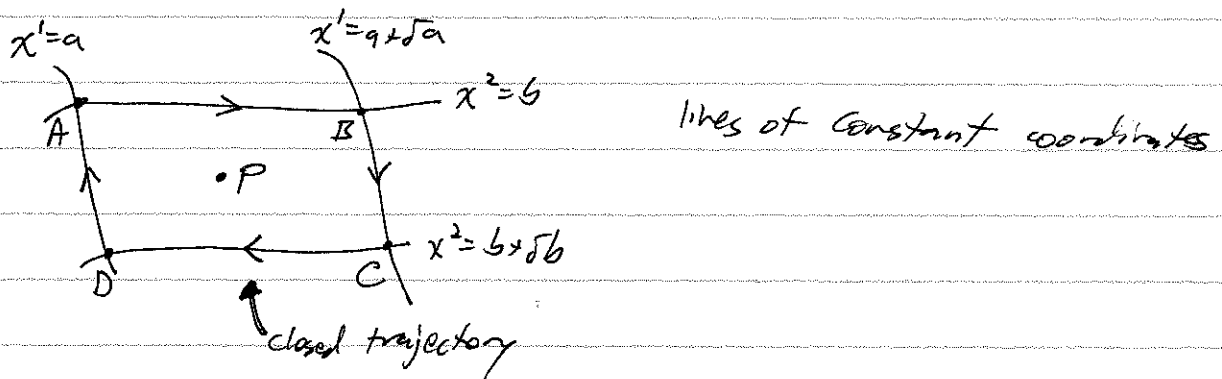 x¹=a
x¹=a+δa
x²=b
lines of constant coordinates
A
B
•P
x²=b+δb
D
C
closed trajectory